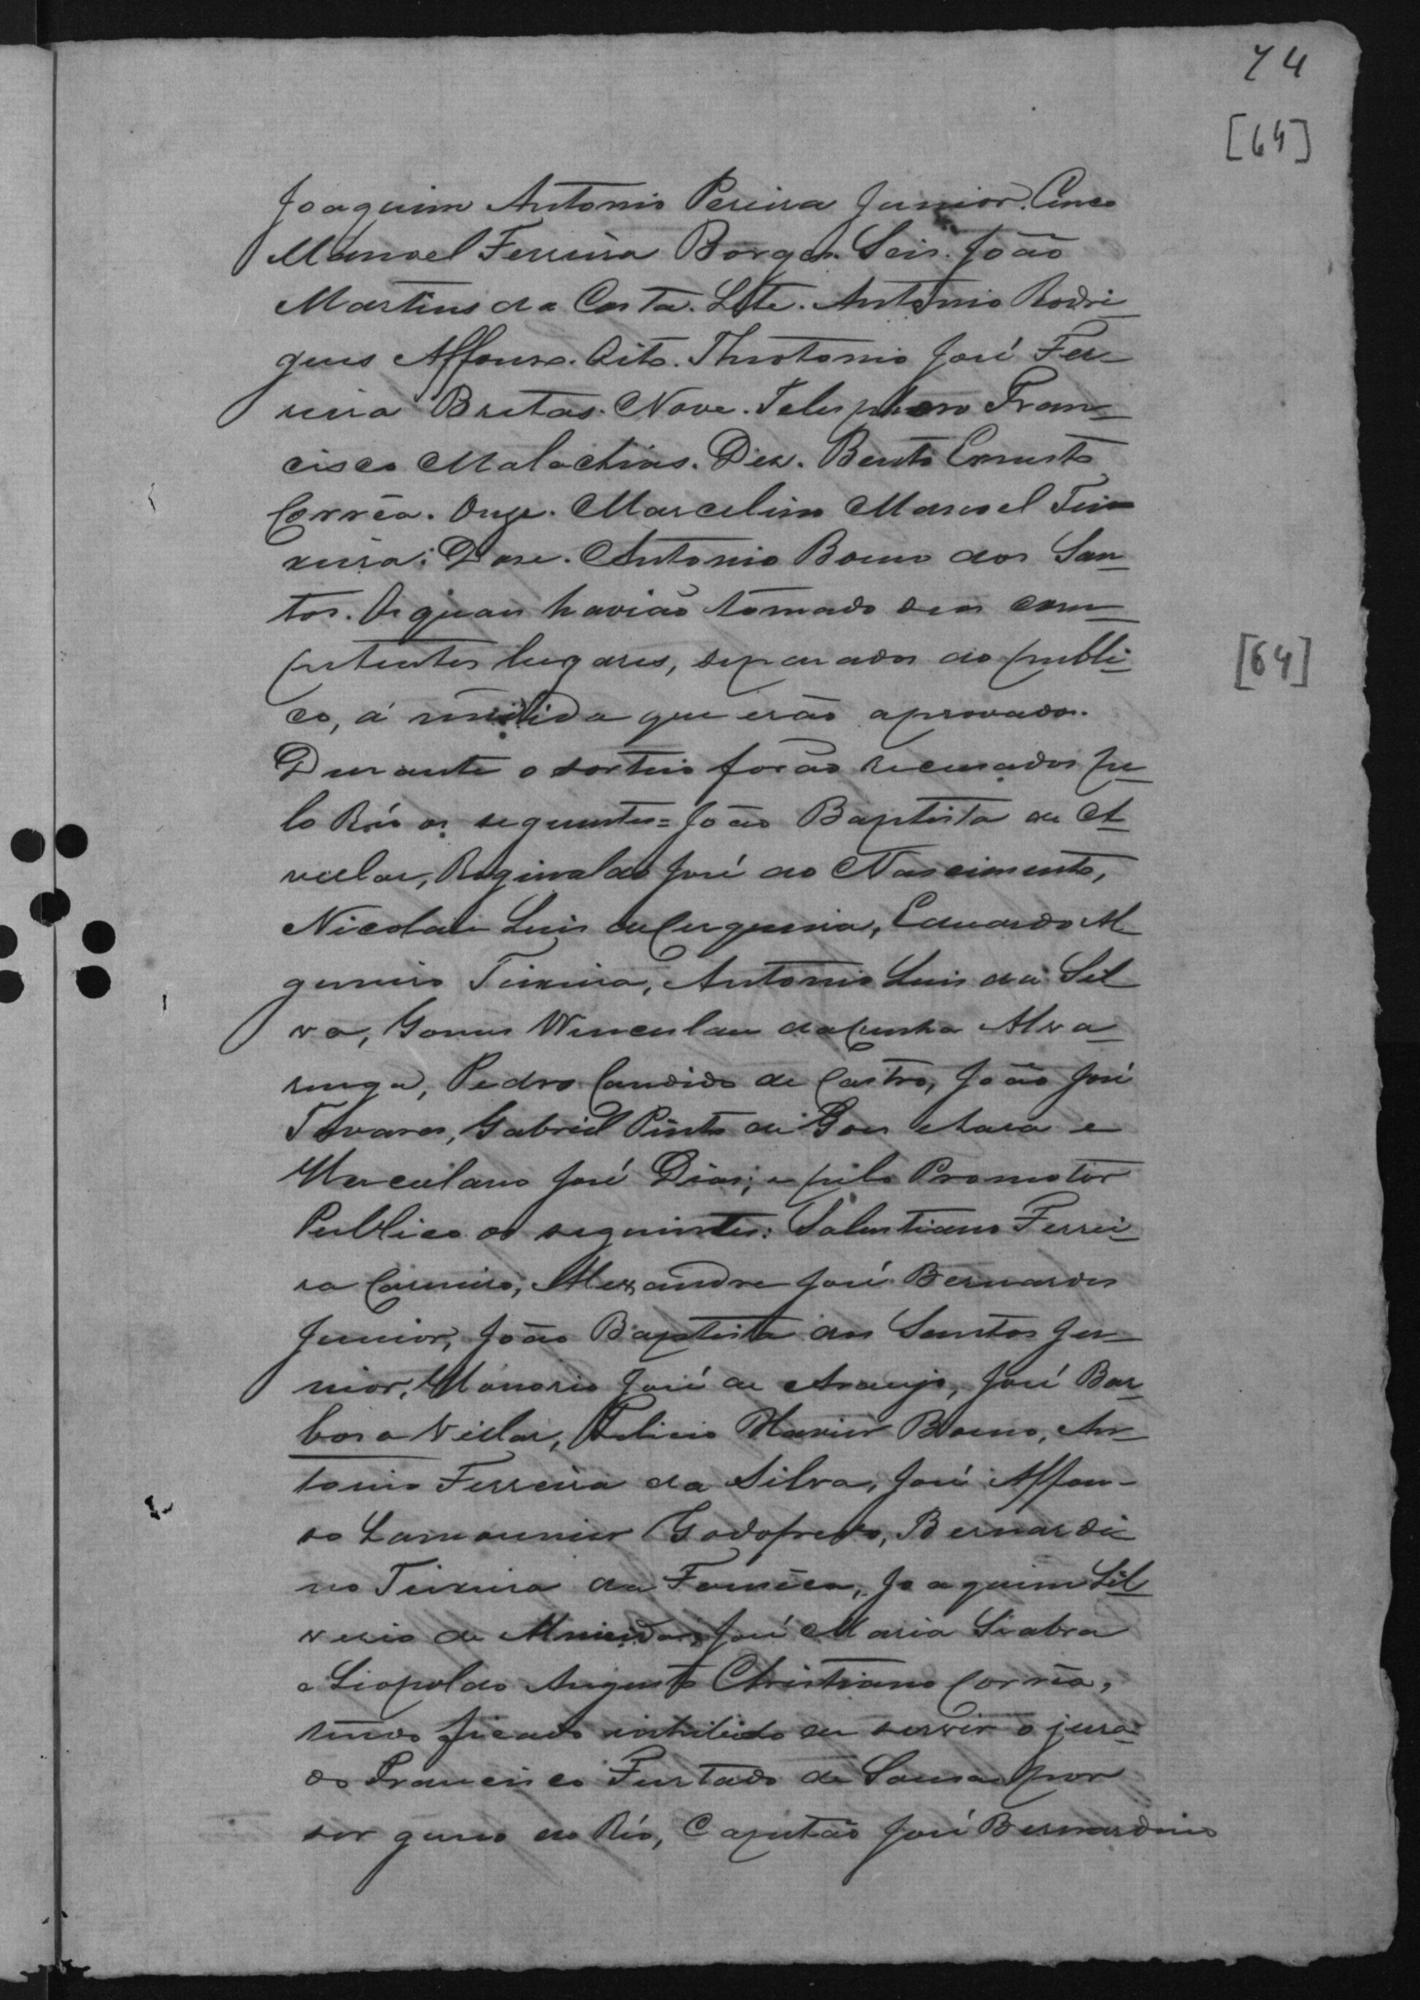 74
[64]
Joaquim Antonio Pereira Junior. Cinco
Manoel Ferreira Borges. Seis. João
Martins da Costa. Sete. Antonio Rodri-
gues Affonso. Oito. Theotonio José Fer-
reira Bretas. Nove. Telesphoro Fran-
cisco Malachias. Dez. Bento Ernesto
Corrêa. Onze. Marcelino Manoel Tei-
xeira. Dose. Antonio Bueno dos San-
tos. Os quaes havião tomado seos com-
petentes lugares, separados do publi-
co, á medida que erão aprovados.
Durante o sorteio forão recusados pe-
lo Réo os seguintes = João Baptista de A-
vellar, Reginaldo José do Nascimento,
Nicolau Luis de Cerqueira, Eduardo Al
gemiro Teixeira, Antonio Luis da Sil
va, Gomes Wenceslau da Cunha Alva-
renga, Pedro Candido de Castro, João José
Tavares, Gabriel Pinto de Goes Lara e
Herculano José Dias; e pelo Promotor
Publico os seguintes: Salustiano Ferrei-
ra Carneiro, Alexandre José Bernardes
Junior, João Baptista dos Santos Ju-
nior, Honorio José de Araujo, José Bar-
bosa Villar, Felicio Xavier Bueno, An-
tonio Ferreira da Silva, José Affon-
so Lamounier Godofredo, Bernardi
no Teixeira da Fonsêca, Joaquim Sil
verio de Almeida, José Maria Seabra
e Liopoldo Augusto Christiano Corrêa,
tendo ficado inhibido de servir o jura-
do Francisco Furtado de Sousa por
ser genro do Réo, Capitão José Bernardino
[64]